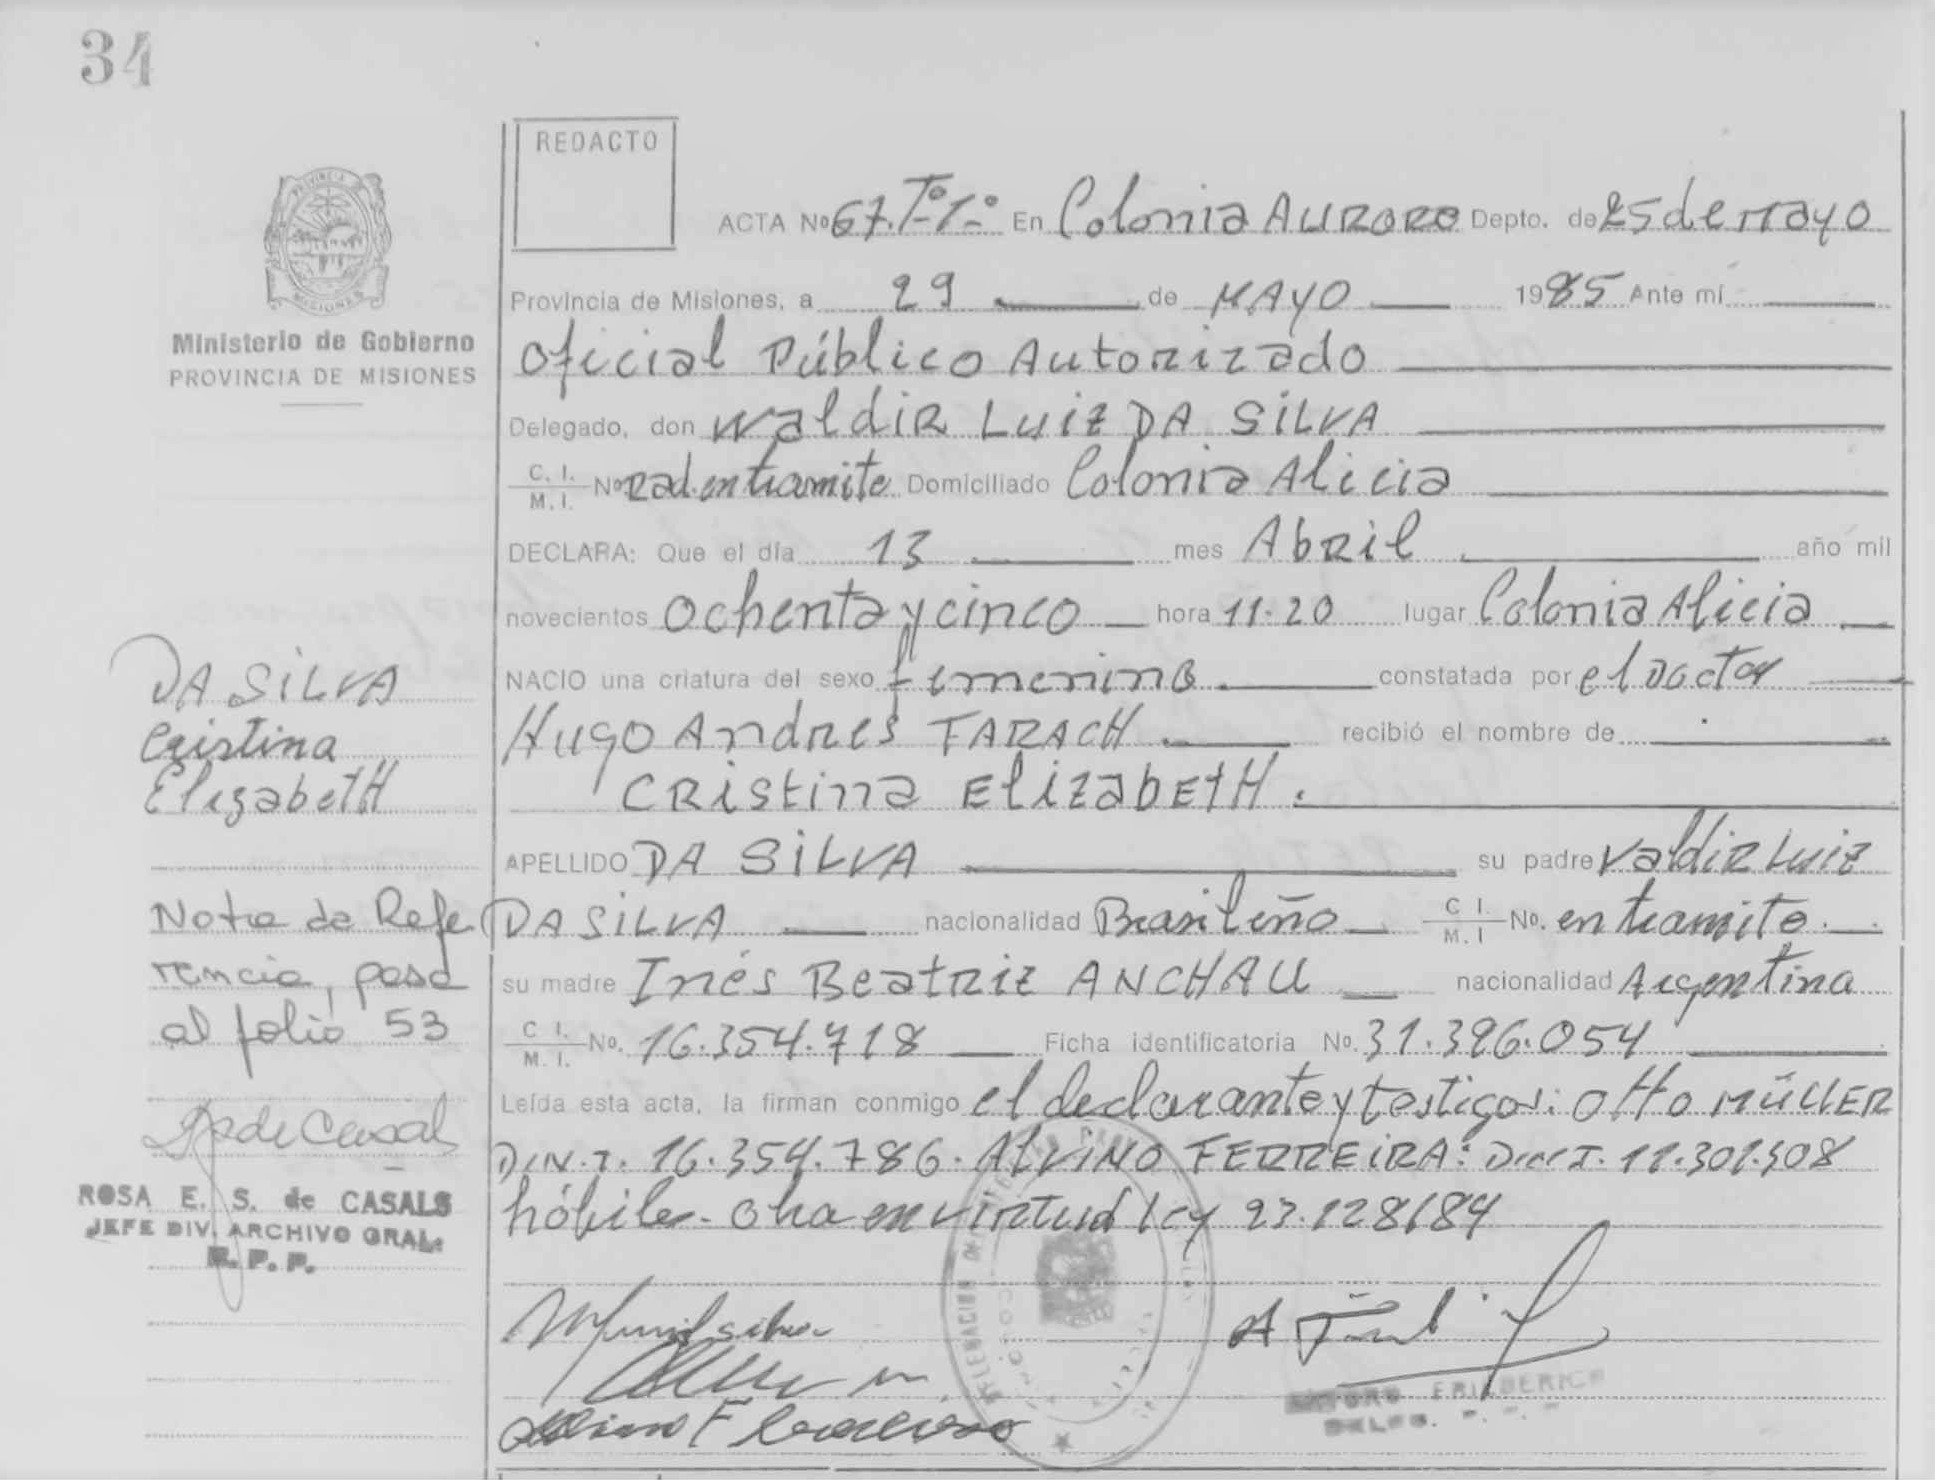 34
REDACTO
PROVINCIA DE
MISIONES
Ministerio de Gobierno
PROVINCIA DE MISIONES
ACTA Nº 67. Tº 1º En Colonia AURORA Depto. de 25 de mayo
Provincia de Misiones, a 29 de MAYO 1985 Ante mí
Oficial Público Autorizado
Delegado, don Waldir Luiz DA SILVA
C. I. / M. I. Nº Rad. en tramite Domiciliado Colonia Alicia
DECLARA: Que el día 13 mes Abril año mil
novecientos ochenta y cinco hora 11.20 lugar Colonia Alicia
NACIO una criatura del sexo femenino constatada por el Doctor
Hugo Andres FARACH recibió el nombre de
CRistina ElizabEtH.
APELLIDO DA SILVA su padre Valdir Luiz
DA SILVA nacionalidad Brasileño C I. / M. I No. en tramite.
su madre Inés Beatriz ANCHAU nacionalidad Argentina
C I. / M. I. No. 16.354.718 Ficha identificatoria No. 31.396.054
Leída esta acta, la firman conmigo el declarante y testigos: Otto MÜLLER
D.N.I. 16.354.786. Alvino FERREIRA: 11.301.508
hábiles. en virtud ley 23.128/84
DA SILVA
Cristina
ElizabetH
Nota de Refe
rencia, pasa
al folio 53
ROSA E. S. de CASALS
JEFE DIV. ARCHIVO GRAL.
R. P. P.